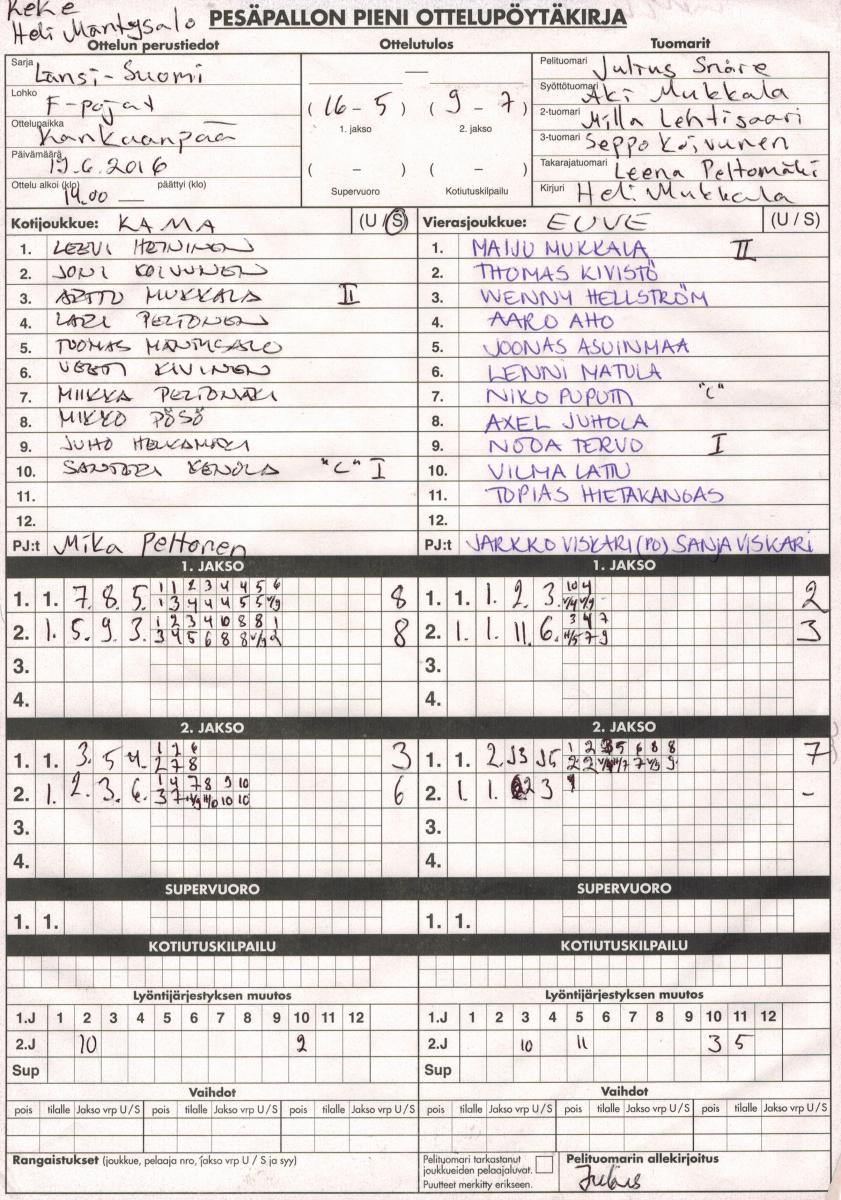 Keke
Heli Mäntysalo
PESÄPALLON PIENI OTTELUPÖYTÄKIRJA
Ottelun perustiedot
Sarja Länsi-Suomi
Lohko F-pojat
Ottelupaikka Kankaanpää
Päivämäärä 19.6.2016
Ottelu alkoi (klo) 14.00 — päättyi (klo)
Ottelutulos
—
( 16 - 5 ) ( 9 - 7 )
1. jakso 2. jakso
( - ) ( - )
Supervuoro Kotiutuskilpailu
Tuomarit
Pelituomari Julius Snåre
Syöttötuomari Aki Mukkala
2-tuomari Milla Lehtisaari
3-tuomari Seppo Koivunen
Takarajatuomari Leena Peltomäki
Kirjuri Heli Mukkala
Kotijoukkue: KAMA (U / S)
1. LEEVI HEININEN
2. JONI KOIVUNEN
3. ARTTU MUKKALA II
4. LARI PELTONEN
5. TUOMAS MÄNTYSALO
6. VEETI KIVINEN
7. MIIKKA PELTOMÄKI
8. MIKKO PÖSÖ
9. JUHO HELKAMÄKI
10. SANTERI KENOLA "C" I
11.
12.
PJ:t Mika Peltonen
Vierasjoukkue: EUVE (U / S)
1. MAIJU MUKKALA II
2. THOMAS KIVISTÖ
3. WENNY HELLSTRÖM
4. AARO AHO
5. JOONAS ASUINMAA
6. LENNI MATULA
7. NIKO PUPUTTI "C"
8. AXEL JUHOLA
9. NOOA TERVO I
10. VILMA LATTU
11. TOPIAS HIETAKANGAS
12.
PJ:t JARKKO VISKARI (PO) SANJA VISKARI
1. JAKSO
1. 1. 7. 8. 5. 1 1 2 3 4 4 5 6 8
1 3 4 4 4 5 5 V/9
2. 1. 5. 9. 3. 1 2 3 4 10 8 8 1 8
3 4 5 6 8 8 V/9 2
3.
4.
1. JAKSO
1. 1. 1. 2. 3. 10 4 2
V/4 V/9
2. 1. 1. 11. 6. 3 4 7 3
H/5 7 9
3.
4.
2. JAKSO
1. 1. 3. 5 4. 1 2 6 3
2 7 8
2. 1. 2. 3. 6. 1 4 7 8 9 10 6
3 7 10 10
3.
4.
2. JAKSO
1. 1. 2. 1 2 5 6 8 8 7
2 2 7 9
2. 1. 1. 3 -
3.
4.
SUPERVUORO
1. 1.
SUPERVUORO
1. 1.
KOTIUTUSKILPAILU
KOTIUTUSKILPAILU
Lyöntijärjestyksen muutos
1.J 1 2 3 4 5 6 7 8 9 10 11 12
2.J 10 2
Sup
Lyöntijärjestyksen muutos
1.J 1 2 3 4 5 6 7 8 9 10 11 12
2.J 10 11 3 5
Sup
Vaihdot
pois tilalle Jakso vrp U / S pois tilalle Jakso vrp U / S pois tilalle Jakso vrp U / S
Vaihdot
pois tilalle Jakso vrp U / S pois tilalle Jakso vrp U / S pois tilalle Jakso vrp U / S
Rangaistukset (joukkue, pelaaja nro, jakso vrp U / S ja syy)
Pelituomari tarkastanut
joukkueiden pelaajaluvat.
Puutteet merkitty erikseen.
Pelituomarin allekirjoitus
Julius